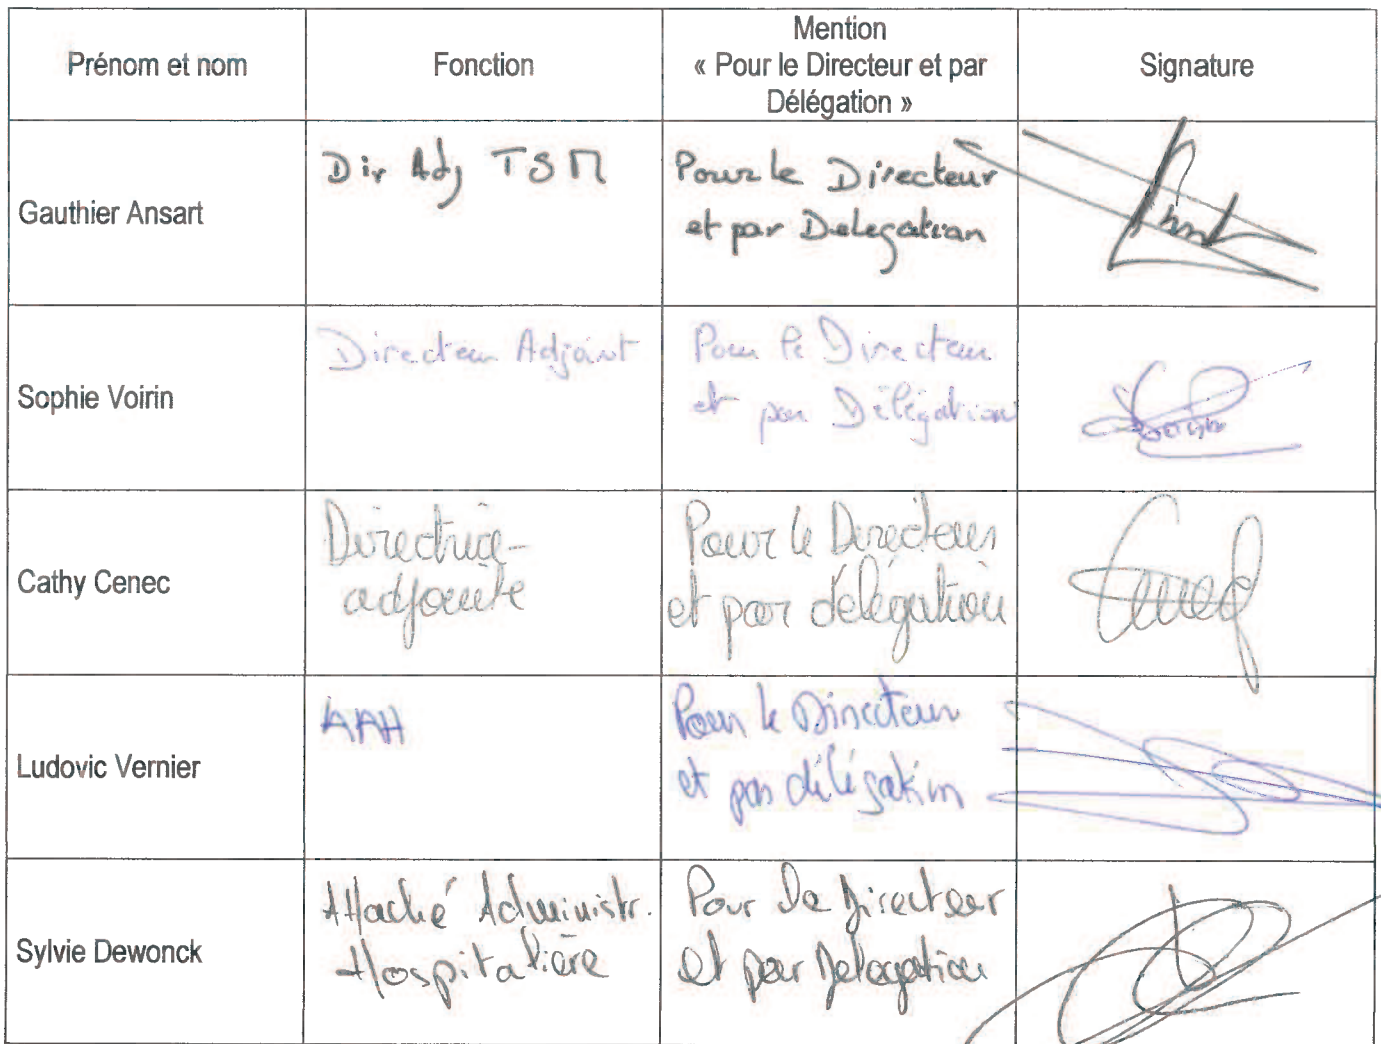 Prénom et nom
Fonction
Mention
« Pour le Directeur et par
Délégation »
Signature
Gauthier Ansart
Dir Adj TSM
Pour le Directeur
et par Delegation
Sophie Voirin
Directeur Adjoint
Pour le Directeur
et par Délégation
Cathy Cenec
Directrice-
adjointe
Pour le Directeur
et par délégation
Cenec
Ludovic Vernier
AAH
Pour le Directeur
et par délégation
Sylvie Dewonck
Attaché Administr.
Hospitalière
Pour Le Directeur
et par Delegation